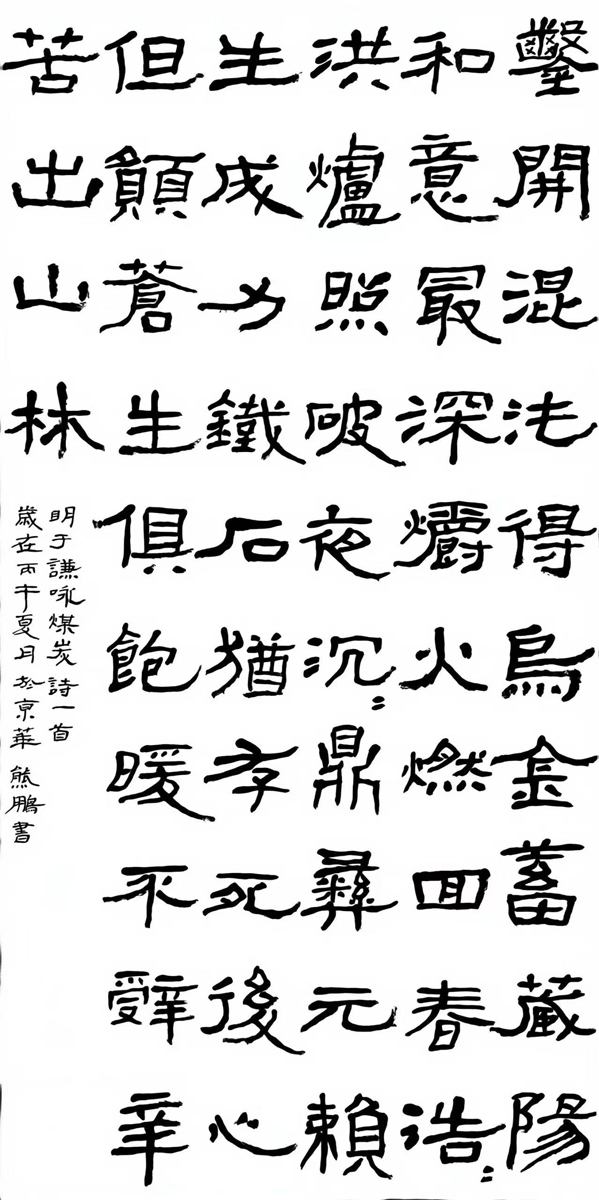 鑿開混沌得烏金蓄藏陽
和意最深爝火燃回春浩〻
洪爐照破夜沉〻鼎彝元賴
生成力鐵石猶存死後心
但願蒼生俱飽暖不辭辛
苦出山林
明于謙咏煤炭詩一首
歲在丙午夏月於京華 熊鵬書